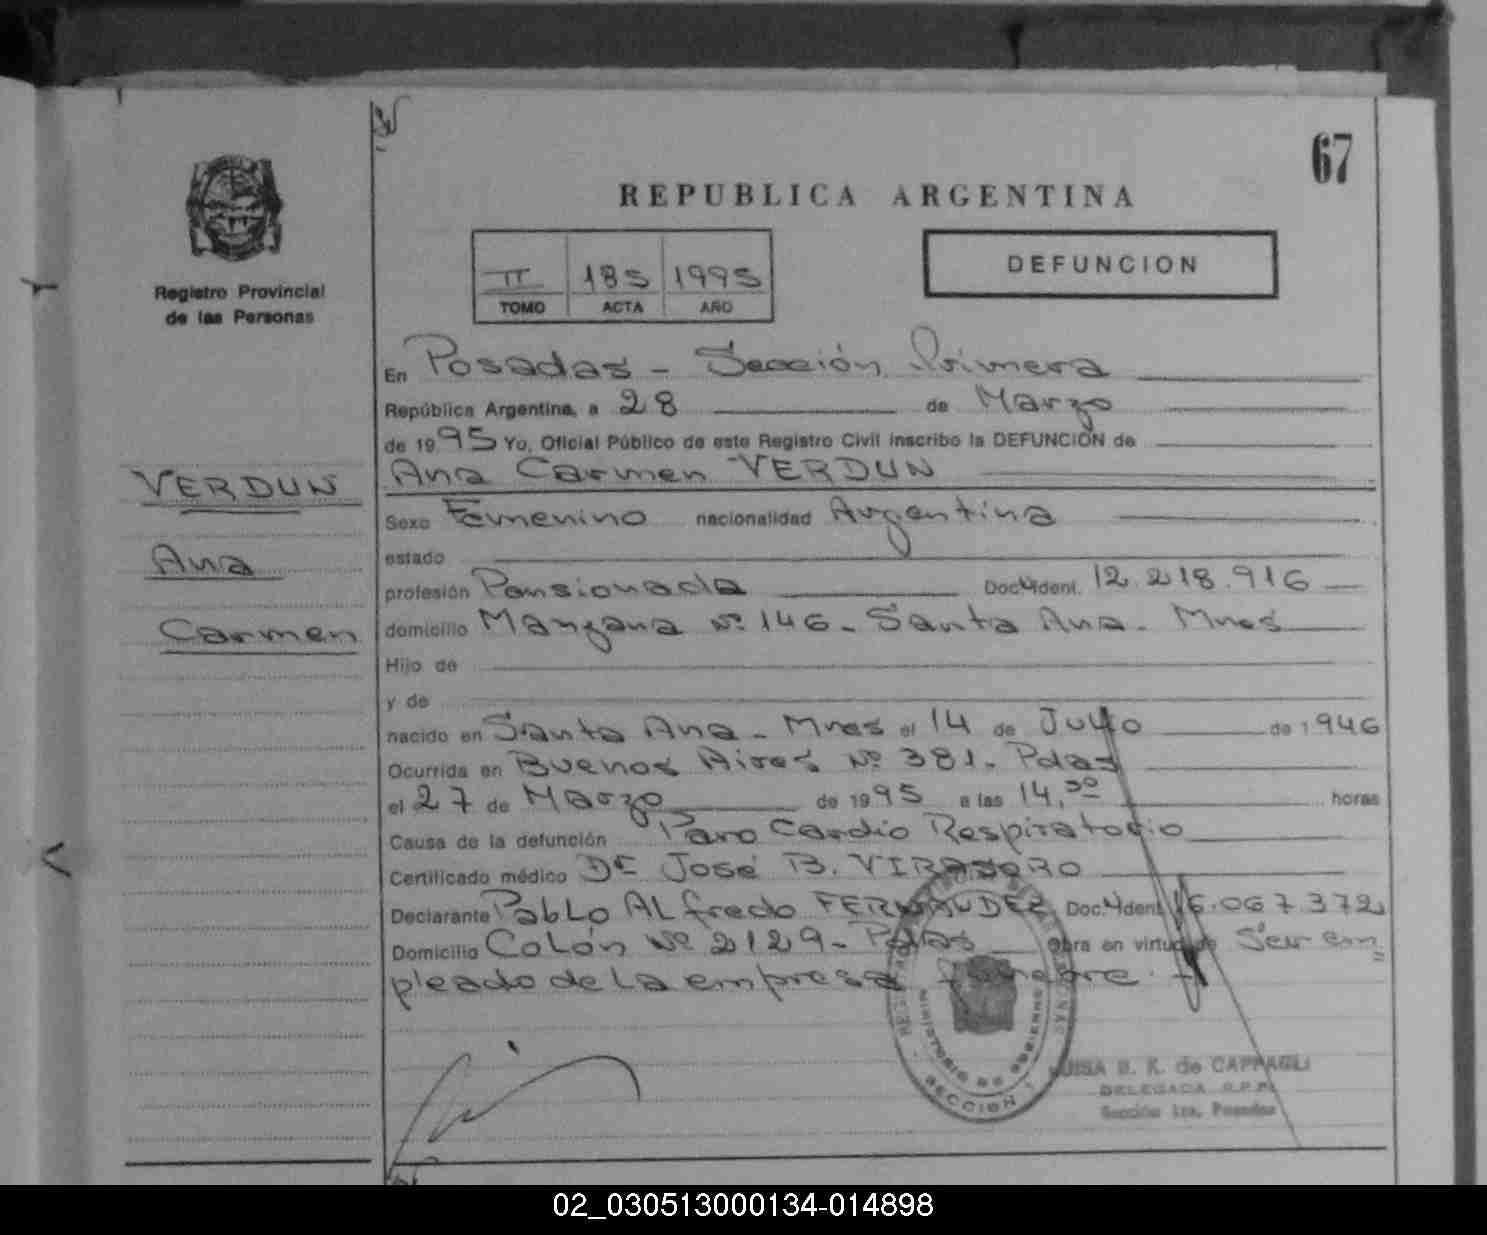 67
REPUBLICA ARGENTINA
Registro Provincial
de las Personas
II 185 1995
TOMO ACTA AÑO
DEFUNCION
En Posadas - Sección Primera
República Argentina, a 28 de Marzo
de 1995 Yo, Oficial Público de este Registro Civil inscribo la DEFUNCION de
Ana Carmen VERDUN
VERDUN
Ana
Carmen
Sexo Femenino nacionalidad Argentina
estado
profesión Pensionada Doc. Ident. 12.218.916
domicilio Manzana Nº 146 - Santa Ana - Mnes
Hijo de
y de
nacido en Santa Ana - Mnes el 14 de Julio de 1946
Ocurrida en Buenos Aires Nº 381 - Pdas
el 27 de Marzo de 1995 a las 14,30 horas
Causa de la defunción Paro Cardio Respiratorio
Certificado médico Dr José B. VIRASORO
Declarante Pablo Alfredo FERNANDEZ Doc. Ident. 16.067.372
Domicilio Colón Nº 2129 - Pdas Obra en virtud de Ser em
pleado de la empresa fúnebre
MINISTERIO DE GOBIERNO
SECCION
LUISA B. K. de CAPPAGLI
DELEGADA R.P.P.
Sección 1ra. Posadas
02_030513000134-014898